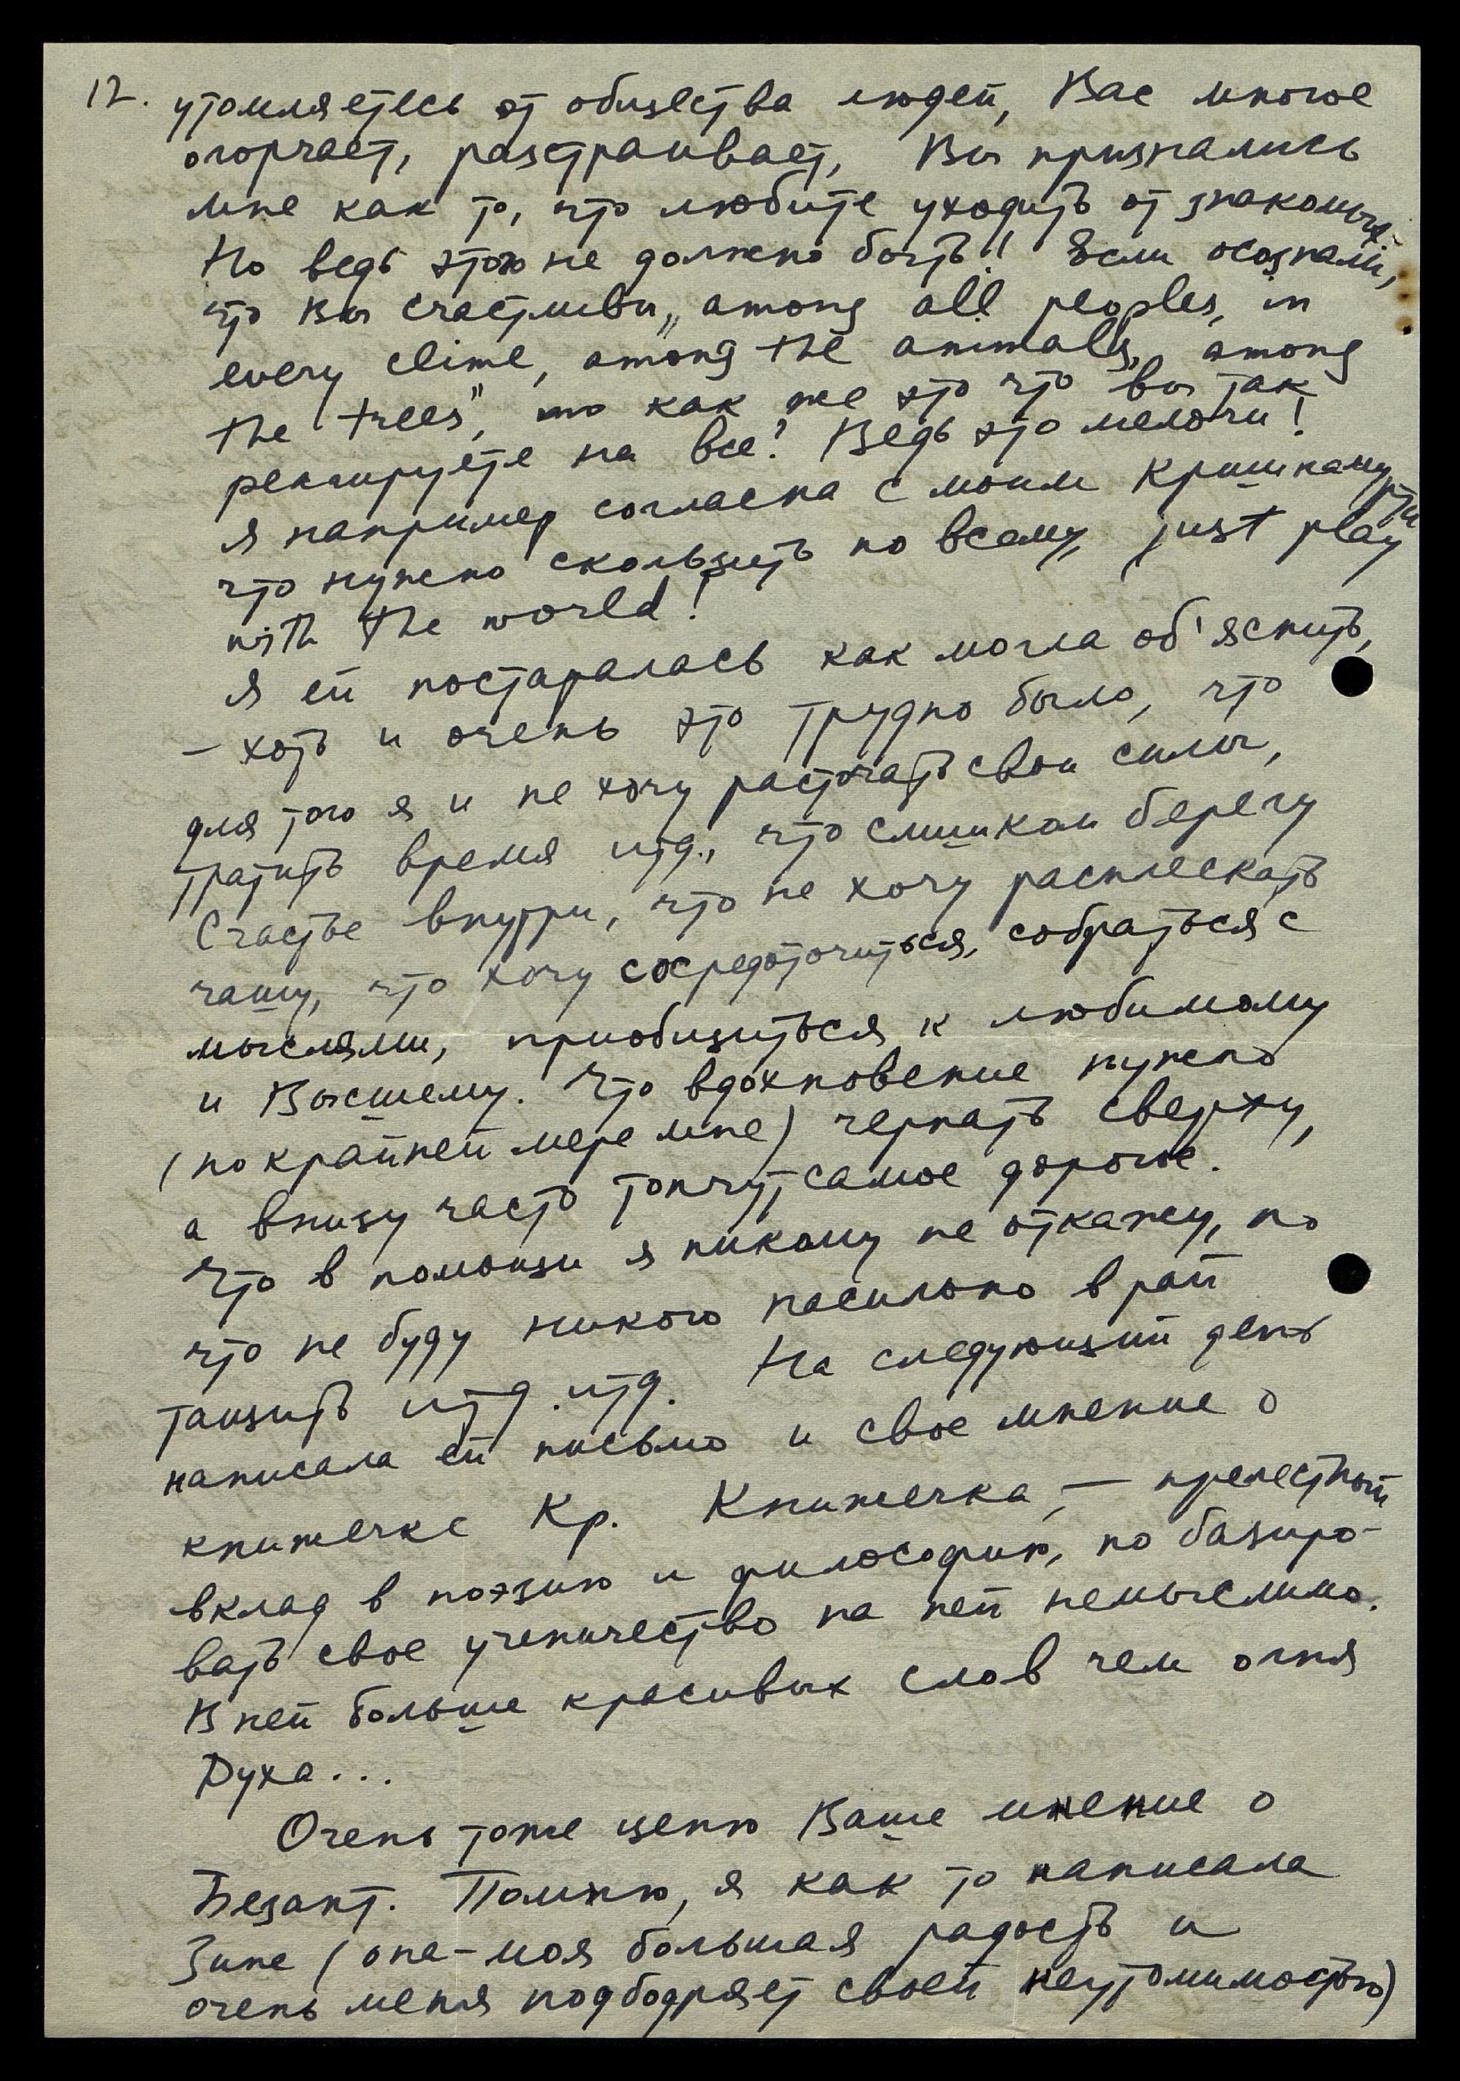 12. утомляетесь от общества людей, Вас многое
огорчает, разстраивает, Вы признались
мне как то, что любите уходить от знакомых.
Но ведь этого не должно быть!! Если осознали,
что Вы счастливы „among all peoples, in
every clime, among the animals, among
the trees", то как же это что вы так
реагируете на все? Ведь это мелочи!
Я например согласна с моим Кришнамурти
что нужно скользить по всему, just play
with the world!
Я ей постаралась как могла об'яснить,
– хоть и очень это трудно было, что
для того я и не хочу расточать свои силы,
тратить время итд., что слишком берегу
Счастье внутри, что не хочу расплескать
чашу, что хочу сосредоточиться, собраться с
мыслями, приобщиться к любимому
и Высшему. Что вдохновение нужно
(по крайней мере мне) черпать сверху,
а внизу часто топчут самое дорогое.
Что в помощи я никому не откажу, но
что не буду никого насильно в рай
тащить итд. итд. На следующий день
написала ей письмо и свое мнение о
книжечке Кр. Книжечка, – прелестный
вклад в поэзию и философию, но базиро-
вать свое ученичество на ней немыслимо.
В ней больше красивых слов чем огня
Духа...
Очень тоже ценю Ваше мнение о
Безант. Помню, я как то написала
Зине (она – моя большая радость и
очень меня подбодряет своей неутомимостью)